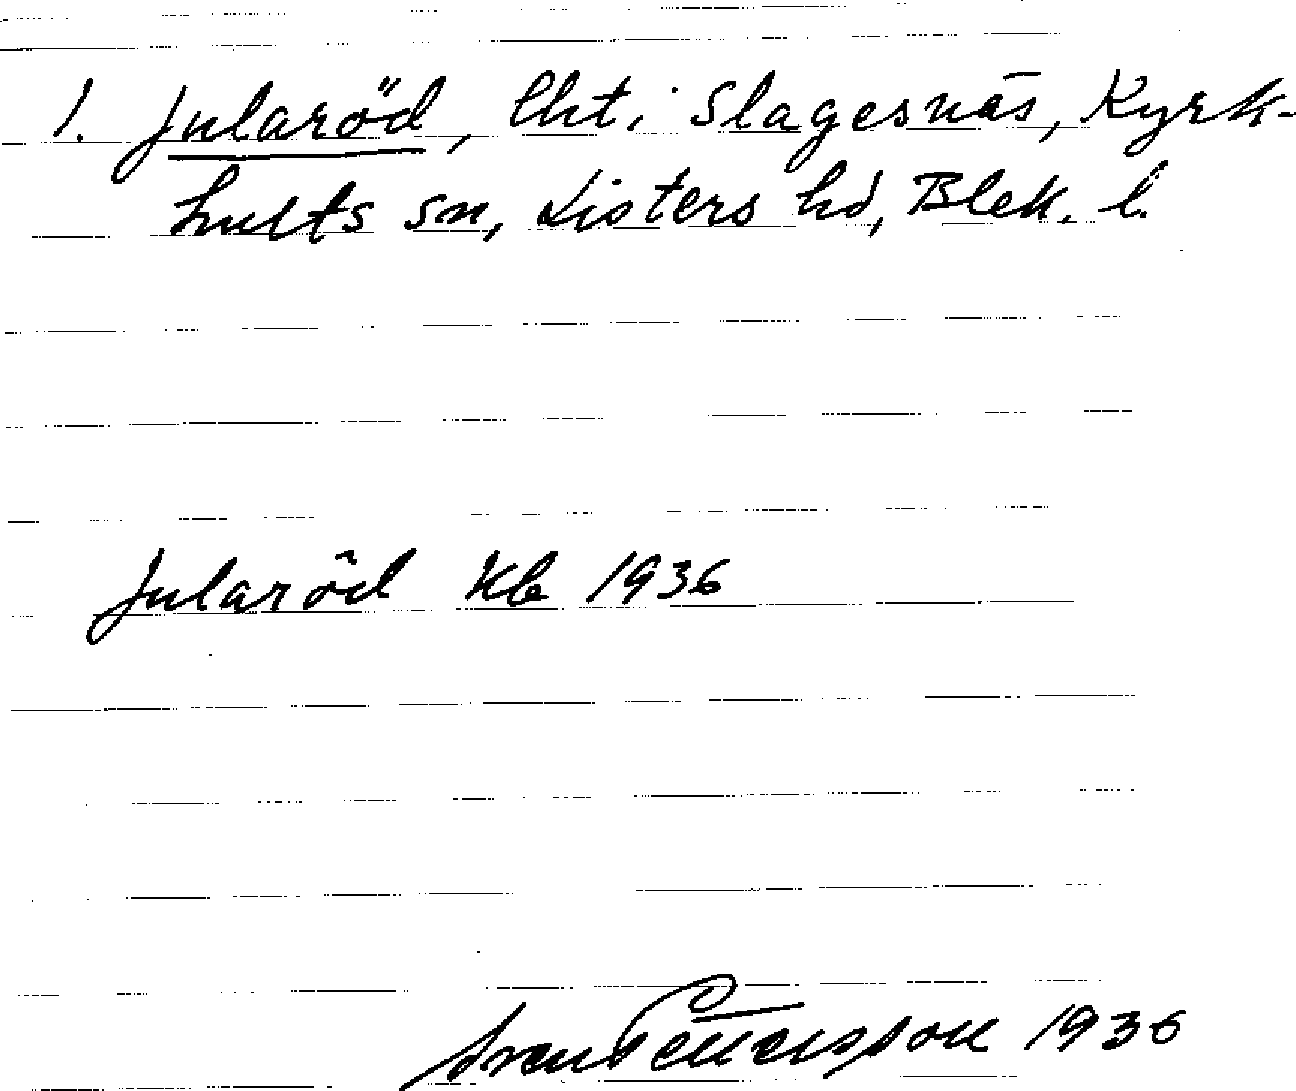 1. Jularöd, lht. i Slagesnäs, Kyrk-
hults sn, Listers hd, Blek. l.
Jularöd Kb 1936
Sven Pettersson 1936